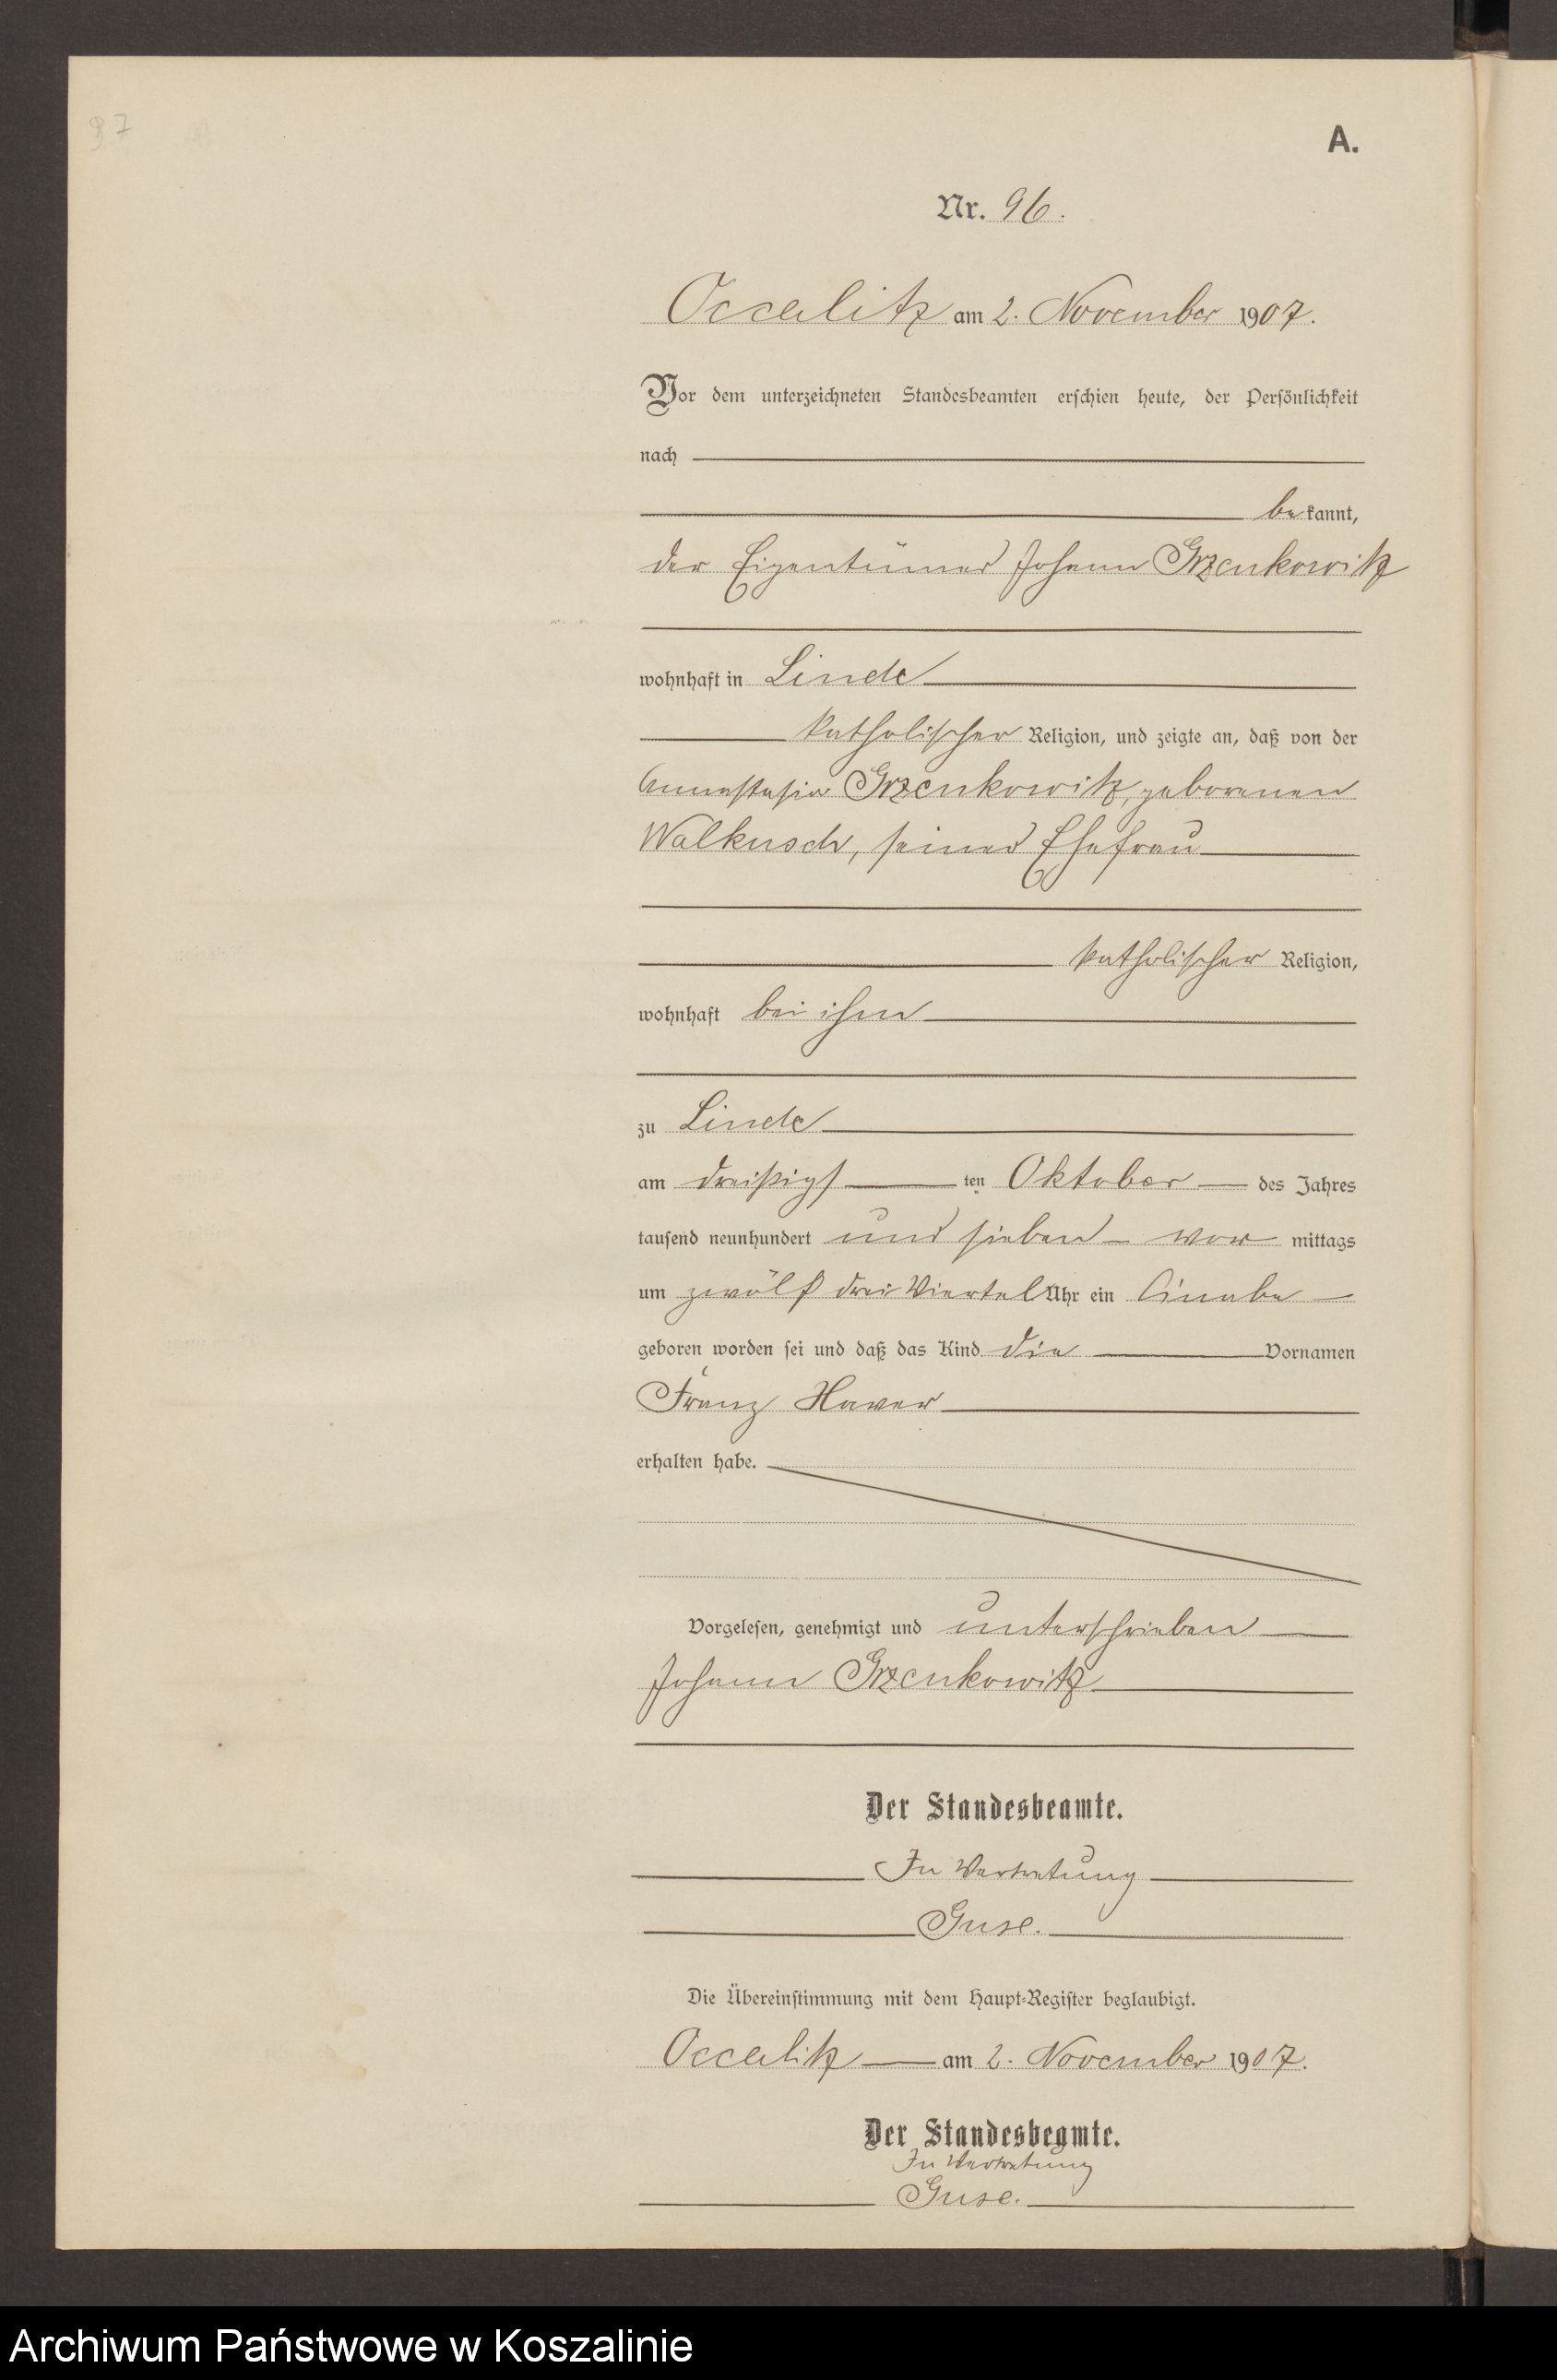 97
A.
Nr. 96.
Occalitz am 2. November 1907.
Vor dem unterzeichneten Standesbeamten erschien heute, der Persönlichkeit
nach
be kannt,
der Eigentümer Johann Grzenkowitz
wohnhaft in Linde
katholischer Religion, und zeigte an, daß von der
Annastasia Grzenkowitz, geborenen
Walkusch, seiner Ehefrau
katholischer Religion,
wohnhaft bei ihm
zu Linde
am dreißigsten Oktober des Jahres
tausend neunhundert und sieben vor mittags
um zwölf drei Viertel Uhr ein Knabe
geboren worden sei und daß das Kind die Vornamen
Franz Xaver
erhalten habe.
Vorgelesen, genehmigt und unterschrieben
Johann Grzenkowitz
Der Standesbeamte.
In Vertretung
Guse.
Die Übereinstimmung mit dem Haupt-Register beglaubigt.
Occalitz am 2. November 1907.
Der Standesbeamte.
In Vertretung
Guse.
Archiwum Państwowe w Koszalinie